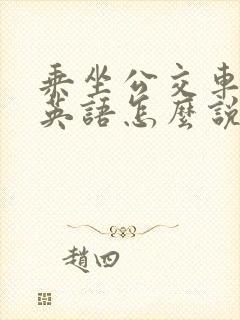 乘坐公交車
英語怎麼說
趙四